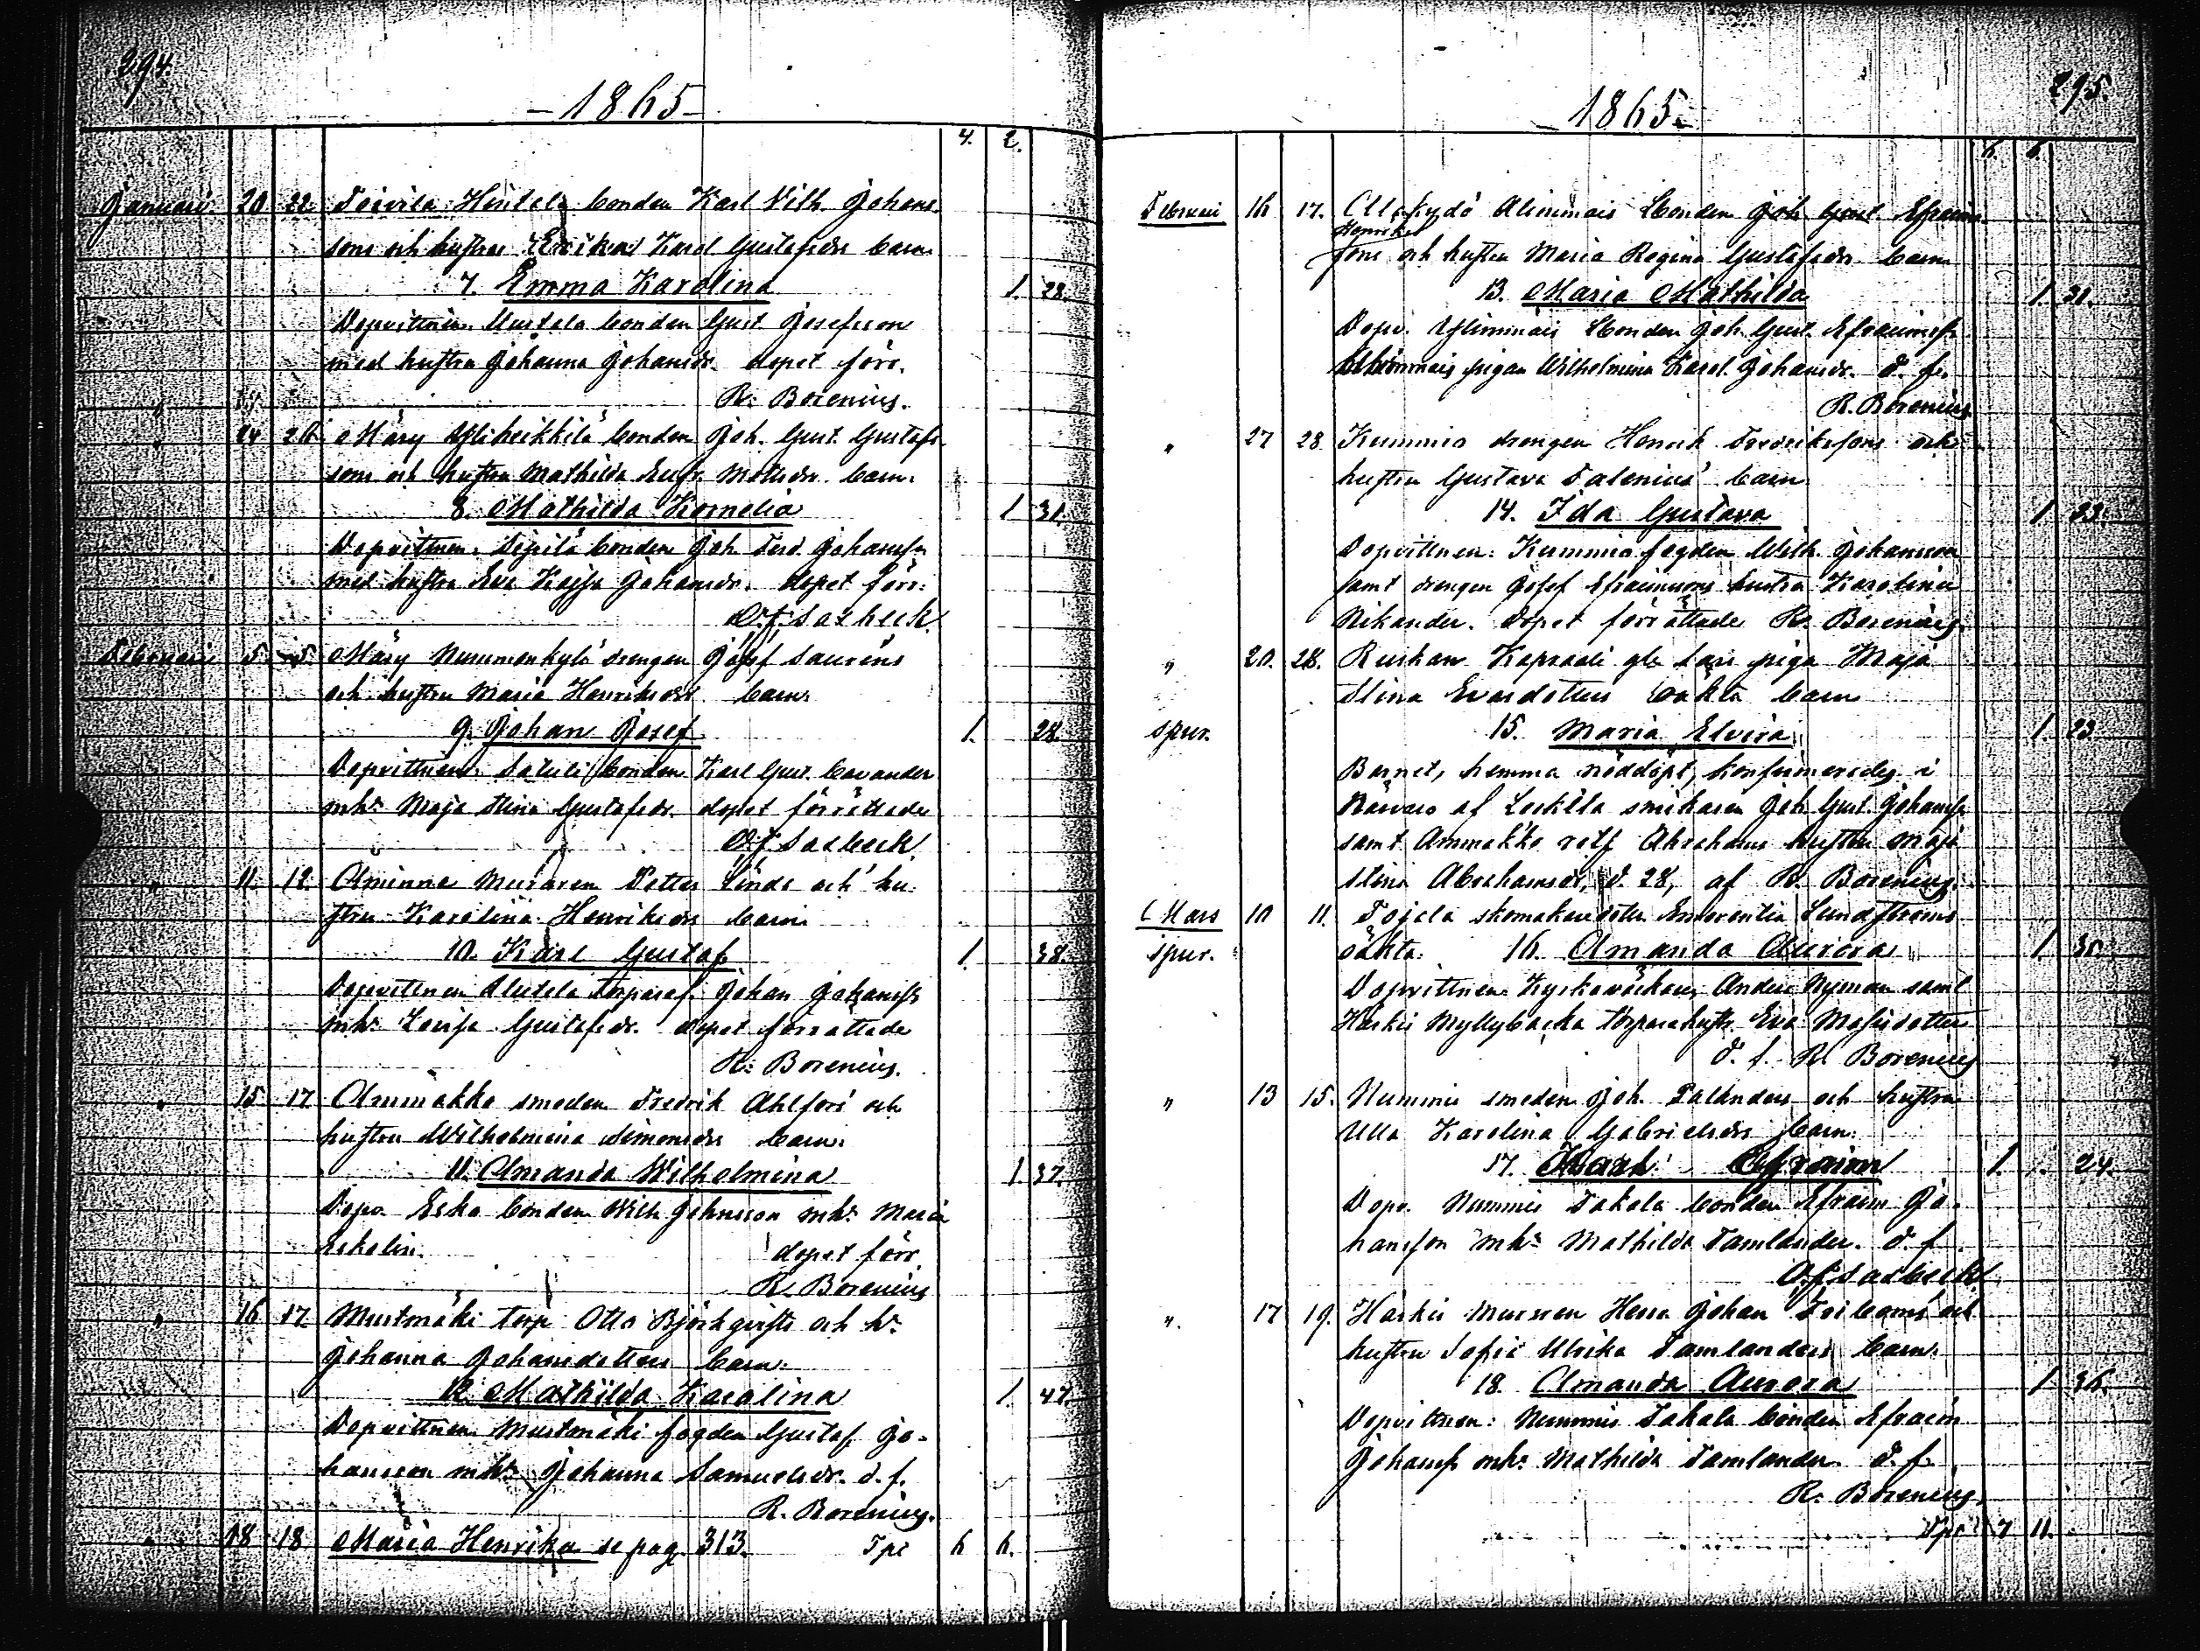 294.
- 1865 -
4. 2.
Januari. 20 22. Toivila Hintala bonden Karl Vilh. Johans
sons och hustrus Erika Karol. Gustafsdr barn
7. Emma Karolina 1. 28.
Dopvittnen. Mustela bonden Gust. Josefsson
med hustru Johanna Johansdr. dopet förr.
R. Borenius.
" 24 26 Märy Yliheikkilä bonden Joh. Gust. Gustafs
sons och hustru Mathilda Eufr. Matsdr. barn.
8. Mathilda Kornelia 1 31.
Dopvittnen. Seppilä bonden Joh. Ferd. Johanssn
med hustru Eva Kajsa Johansdr. dopet förr.
O. f. Saxbeck.
Februari 5 5 Märy Nurumenkylä drengen Josef Sauréns
och hustru Maria Henriksdr barn.
9. Johan Josef 1. 28
Dopvittnen. Satuli bonden Karl Gust. Cavander
mhr Maja Stina Gustafsdr. dopet förrättade
O. f. Saxbeck
" 11. 12. Aminne Muraren Petter Linds och hu-
stru Karolina Henriksdr barn
10. Karl Gustaf 1. 38.
Dopvittnen Alutala torparen Johan Johanssn
mhr. Lovisa Gustafsdr. dopet förrättade
R. Borenius.
" 15 17 Ammakko smeden Fredrik Ahlfors och
hustru Wilhelmina Simonsdr barn.
11. Amanda Wilhelmina 1. 37.
Dopv. Esko bonden Wilh. Johnsson mhr Maria
Eskelin. dopet förr.
R. Borenius
" 16 17. Mustmäki torp. Otto Björkqvists och hr.
Johanna Johansdotters barn.
12. Mathilda Karolina 1. 47.
Dopvittnen Mustmäki fogden Gustaf Jo-
hansson mhr. Johanna Samuelsdr. d. f.
R. Borenius.
" 18 18 Maria Henrika se pag. 313. Tpt 6 6.
295.
1865.
6. 6.
Februari 16 17. Alimmais bonden Joh. Gust. Efraims
sons och hustru Maria Regina Gustafsdr barn
13. Maria Mathilda 1 31.
Dopv. Ylimmäis bonden Joh. Gust. Efraimssn
Alimmais pigan Wilhelmina Karol. Johansdr. d. f.
R. Borenius
" 27 28 Kummio drengen Henrik Fredrikssons och
hustru Gustava Salenius' barn
14. Ida Gustava 1 23.
Dopvittnen: Kummio fogden Wilh. Johansson
samt drengen Josef Efraimssons hustru Karolina
Nikander. Dopet förrättade R. Borenius.
" 20. 28. Ruskan Kapraali piga Maja
Stina Evasdotters oäkta barn
spur. 15. Maria Elvira 1. 23
Barnet, hemma nöddöpt, konfirmerades i
närvaro af Leikkilä smikaren Joh. Gust. Johanssn
samt Ammakko rotf. Abrahams hustru Maja
Stina Abrahamsdr, d. 28, af R. Borenius.
Mars 10 11. Tojala skomakaredotter Emerentia Lundströms
spur. oäkta. 16. Amanda Aurora 1. 30.
Dopvittnen Kyrkoväktaren Anders Nyman samt
Härkis Myllybacka torparehustr. Eva Matsdotter
d. f. R. Borenius
" 13 15. Nummis smeden Joh. Palanders och hustru
Ulla Karolina Gabrielsdrs barn.
17. Efraim 1. 24.
Dopv. Nummis Takala bonden Efraim Jo-
hansson mhr. Mathilda Tamlander. d. f.
O. f. Saxbeck
" 17 19. Härkis Johan och
hustru Sofia Ulrika Tamlanders barn.
18. Amanda Aurora 1 36.
Dopvittnen: Nummis Takala bonden Efraim
Johanss. mhr. Mathilda Tamlander d. f.
R. Borenius.
Tpt 7 11.